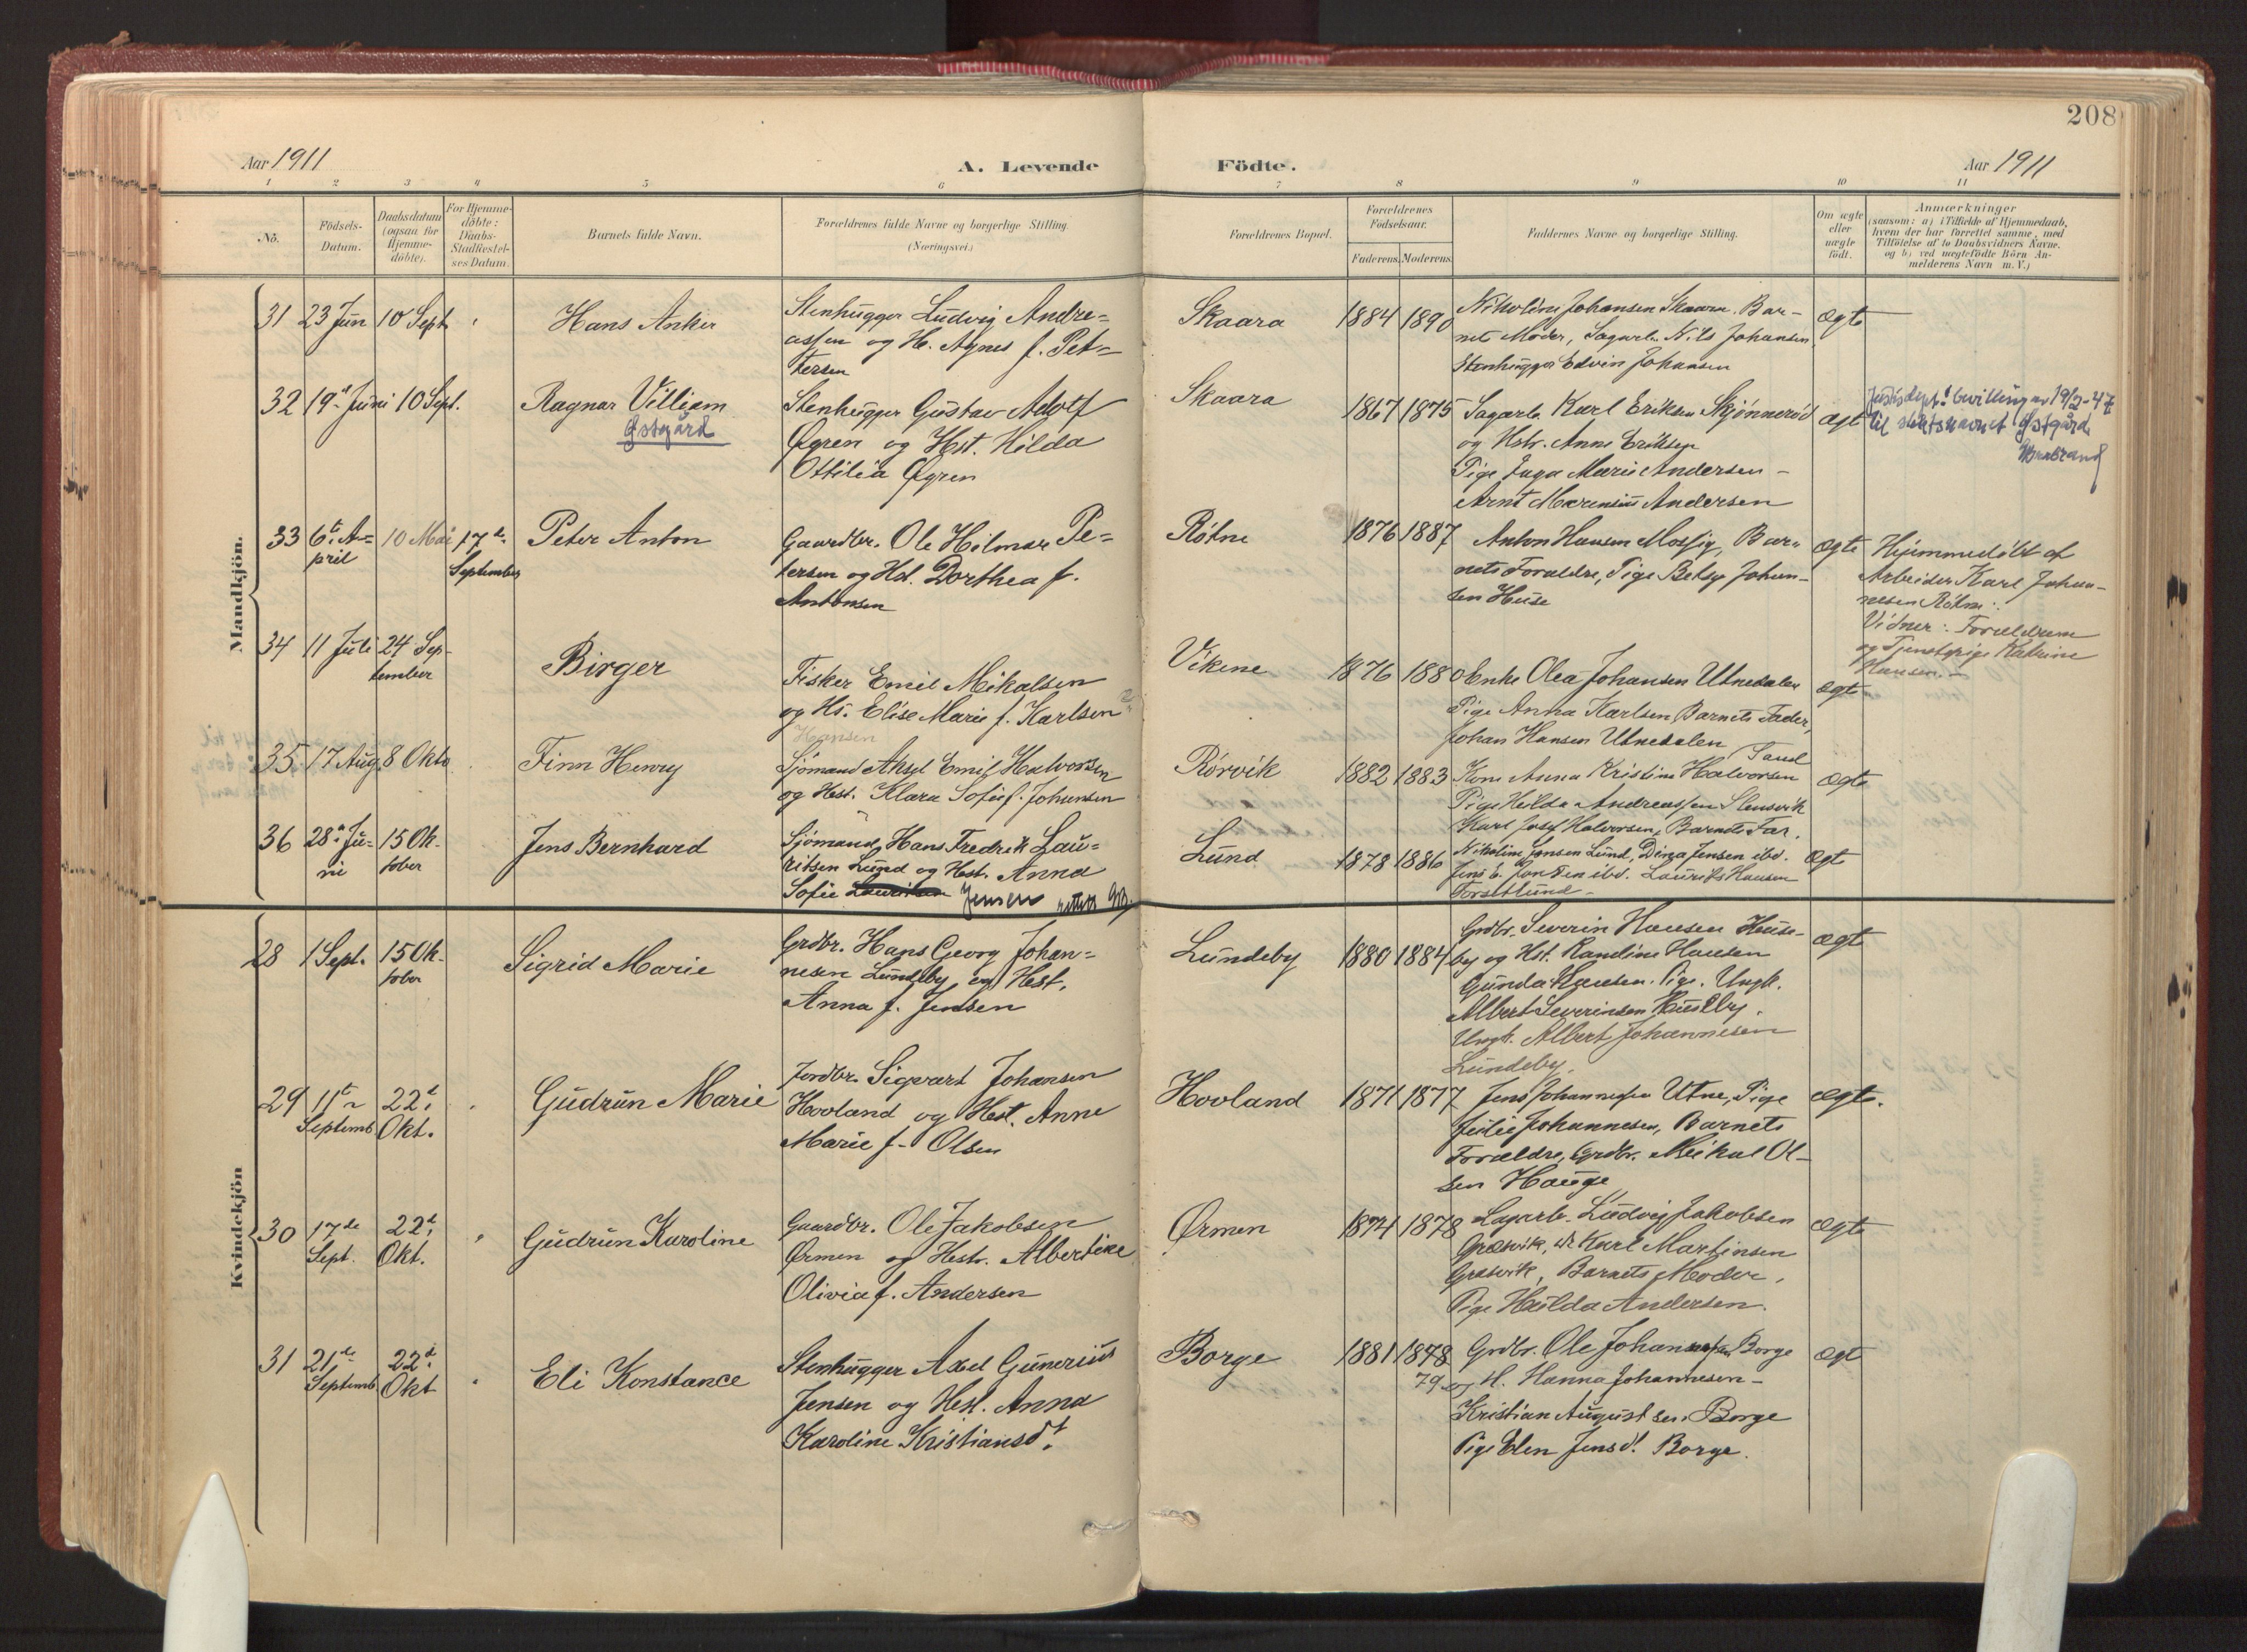 208
Aar 1911
A. Levende
Födte.
Aar 1911
1 2 3 4 5 6 7 8 9 10 11
No.
Födsels-
Datum.
Daabsdatum
(ogsaa for
Hjemme-
döbte).
For Hjemme-
döbte:
Daabs-
Stadfæstel-
ses Datum.
Barnets fulde Navn.
Forældrenes fulde Navne og borgerlige Stilling
(Næringsvei.)
Forældrenes Bopæl.
Forældrenes
Födselsaar.
Faderens. Moderens.
Faddernes Navne og borgerlige Stilling.
Om ægte
eller
uægte
födt.
Anmærkninger
(saasom: a) i Tilfælde af Hjemmedaab,
hvem der har forrettet samme, med
Tilföielse af to Daabsvidners Navne.
og b) ved uægtefödte Börn An-
melderens Navn m. V.)
Mandkjön.
31 23 Jun 10 Sept. Hans Anker
Stenhugger Ludvig Andre=
assen og H. Agnes f. Pet=
tersen
Skaara 1884 1890
Nikoline Johansen Skaara. Bar-
nets Moder, Sagarb. Nils Johansen
Stenhugger Edvin Johansen
ægte
32 19 Juni 10 Sept. Ragnar Villiam
Østgård
Stenhugger Gustav Adolf
Øgren og Hst. Hilda
Ottilia Øgren
Skaara 1867 1875
Sagarb. Karl Eriksen Skjønnerød
og Hstr. Anne Eriksen
Pige Inga Marie Andersen -
Arnt Marensius Andersen
ægte
Justisdept. bevilling av 19/2-47
til slektsnavnet Østgård
33 6te A=
pril
10 Mai 17de
September
Peter Anton
Gaardbr. Ole Hilmar Pe=
tersen og Hd. Dorthea f.
Antonsen
Röhne 1876 1887
Anton Hansen Mossig, Bar-
nets Forældre, Pige Betsy Johan-
sen Huse
ægte
Hjemmedöbt af
Arbeider Karl Johan-
nesen Röhne.
Vidner: Forældrene
og Tjenestpige Katrine
Hansen. -
34 11 Juli 24 Sep-
tember
Birger
Fisker Emil Mikalsen
og Hs. Elise Marie f. Karlsen
Hansen
Vikene 1876 1880
Enke Olea Johansen Utnedalen
Pige Anna Karlsen, Barnets Fader,
Johan Hansen Utnedalen
ægte
35 17 Aug 8 Okto Finn Henry
Sjömand Aksel Emil Halvorsen
og Hst. Klara Sofie f. Johansen
Rörvik 1882 1883
Kone Anna Kristine Halvorsen
Pige Hilda Andreassen Slensvik
Karl Josef Halvorsen, Barnets Far.
ægte
36 28 Ju-
ni
15 Ok-
tober
Jens Bernhard
Sjömand Hans Fredrik Lau=
ritsen Lund og Hst. Anna
Sofie Lauritsen Jensen rettet
Lund 1878 1886
Nikoline Jensen Lund, Dina Jensen ibd.
Jens E. Jensen ibd. Laurits Hansen
ægt
Kvindekjön
28 1 Sept. 15 Ok-
tober
Sigrid Marie
Grdbr. Hans Georg Johan=
nesen Lundeby og Hst.
Anna f. Jensen
Lundeby 1880 1884
Grdbr. Severin Hansen Huse-
by og Hst. Randine Hansen
Gunda Hansen. Pige. Ungk.
Albert Severinsen Huseby.
Ungk. Albert Johannesen
Lundeby.
ægte
29 11te
Septemb
22d
Okt.
Gudrun Marie
Jordbr. Sigvart Johansen
Hovland og Hst. Anne
Marie f. Olsen
Hovland 1871 1877
Jens Johannessen Utne, Pige
Julie Johannesen, Barnets
Forældre, Grdbr. Mikal Ol-
sen Hauge
ægte.
30 17de
Sept.
22d
Okt.
Gudrun Karoline
Gaardbr. Ole Jakobsen
Örmen og Hstr. Albertine
Olivia f. Andersen
Örmen 1874 1878
Sagarb. Ludvig Jakobsen
Gresvik, Karl Martinsen
Gresvik, Barnets Moder,
Pige Hulda Andersen.
ægte
31 21de
Septemb
22d
Okt
Eli Konstance
Stenhugger Axel Gunerius
Jensen og Hst. Anna
Karoline Kristiansdt.
Borge 1881 1878
79
Grdbr. Ole Johannessen Borge
og H. Hanna Johannesen -
Kristian Augustsen Borge
Pige Elen Jensdt. Borge.
ægt